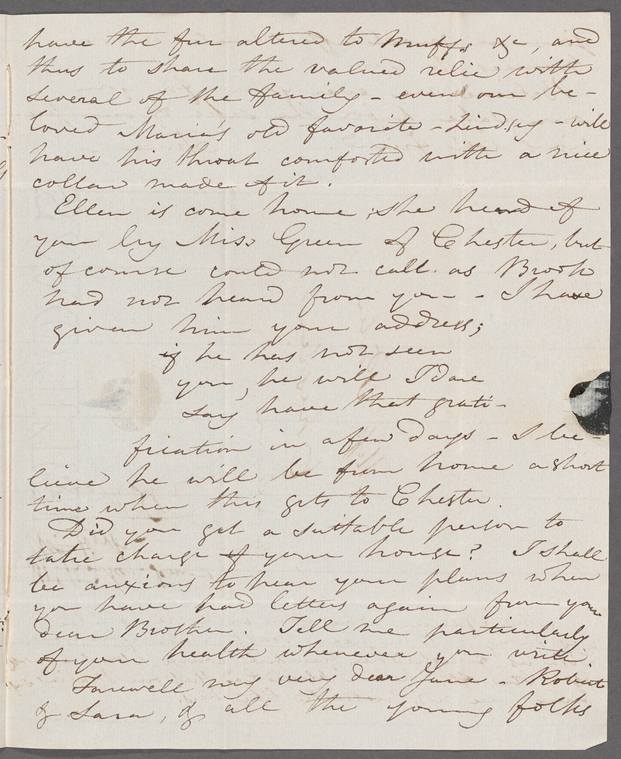 have the fur altered to Muffs &c, and
thus to share the valued relic with
several of the family - even our be-
loved Maria's old favorite - Lindsey - will
have his throat comforted with a nice
collar made of it.
Ellen is come home; she heard of
you by Miss Green of Chester, but
of course could not call as Brook
had not heard from you - I have
given him your address;
if he has not seen
you, he will I dare
say have that grati-
fication in a few days - I be-
lieve he will be from home a short
time when this gets to Chester.
Did you get a suitable person to
take charge of your house? I shall
be anxious to hear your plans when
you have had letters again from you
dear Brother. Tell me particularly
of your health whenever you write
Farewell my very dear Jane - Robert
& Sara, & all the young folks